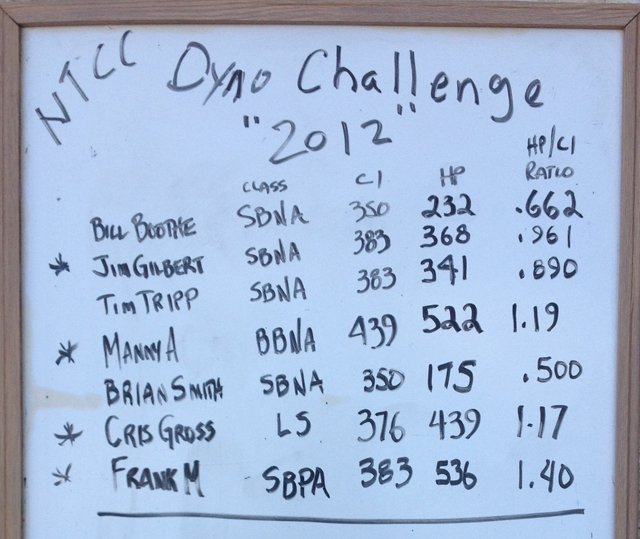 NTCC Dyno Challenge
"2012"
CLASS CI HP HP/CI RATIO
BILL BOOTHE SBNA 350 232 .662
* JIM GILBERT SBNA 383 368 .961
TIM TRIPP SBNA 383 341 .890
* MANNY A BBNA 439 522 1.19
BRIAN SMITH SBNA 350 175 .500
* CRIS GROSS LS 376 439 1.17
* FRANK M SBPA 383 536 1.40